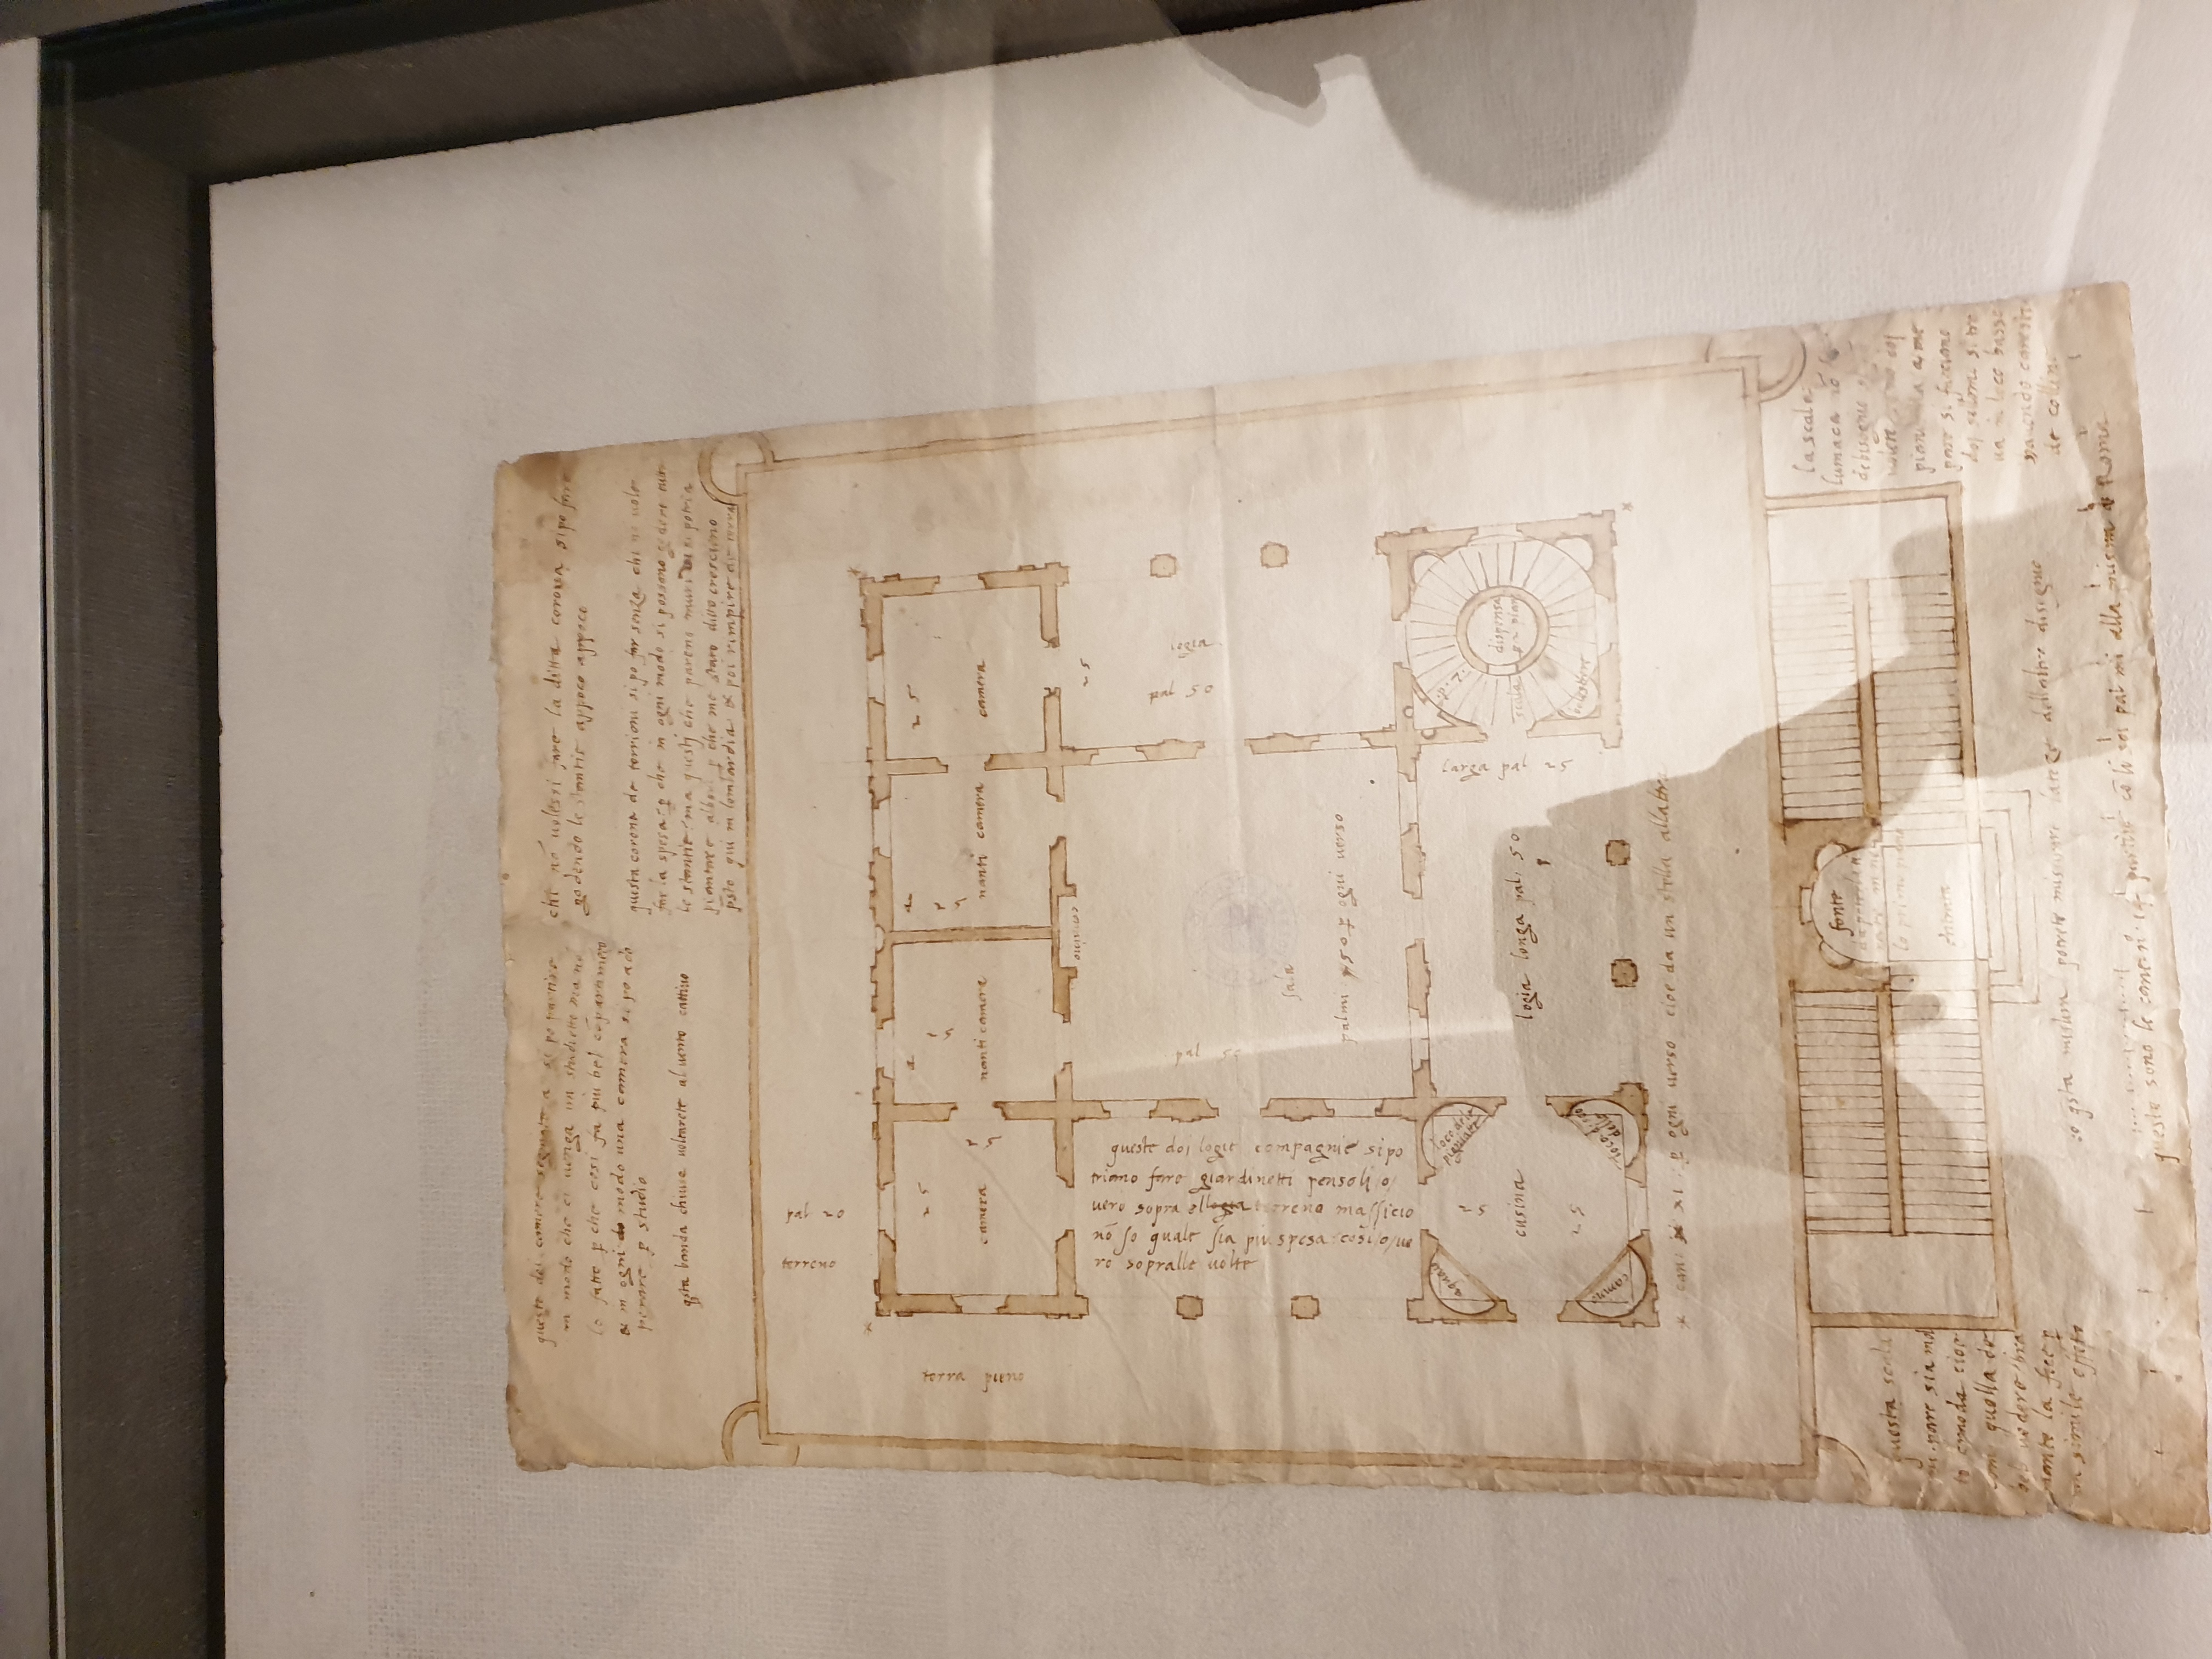 queste doi camere segnate a si po partire
in modo che ci venga un studietto ma nō
lo fatto p che cosi fa piu bel cōpartimēto
& in ogni do modo una camera si po ado
perare p studio
qsta banda chiusa voltarete al vento cattivo
chi nō volessi fare la ditta corona si po fare
godendo le stantie appoco appoco
questa corona de torrioni si po far senza chi nō vole
far la spesa p che in ogni modo si possono godere tutte
le stantie ma questj che pareno muri si potria
piantare albori p che me stato ditto crescieno
psto qui in lombardia & poi rimpire de terra
pal 20
terreno
terra pieno
25
a
a
25
25
25
25
camera
nanti camera
nanti camera
camera
camino
25
queste doj logie compagnie si po
triano fare giardinetti pensolj o
vero sopra al terreno massiccio
nō so quale sia piu spesa cosi o
ro sopralle volte
pal 55
pal 50
logia
sala
palmi 50 p ogni verso
aquaio
loco dele
25
cusina
25
camino
loco
logia longa pal 50
larga pal 25
scala
dispensa
* cane XI p ogni verso cioe da un stella allaltra
fonte
lo primo piano
entrata
questa scala
mi pare sia mol
to cōmoda cioe
come quella de
bel vedere bra
mante la fece p
un simile effetto
la scala
lumaca nō
de bisogno
volete
piani
pare si facciano
doj si tro
va in loco basso
havendo carestia
de colline
cō qsta misura potrete misurare dellaltro disegnio
queste sono le cane partite cō li soi palmi alla misura de Roma